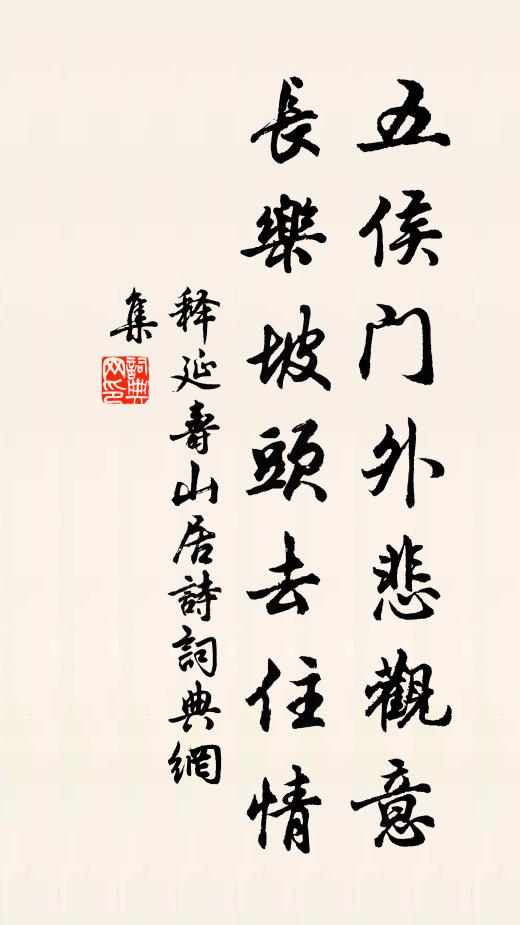 五侯門外悲觀意
長樂坡頭去住情
释延壽山居詩詞典網
集
詞典網印